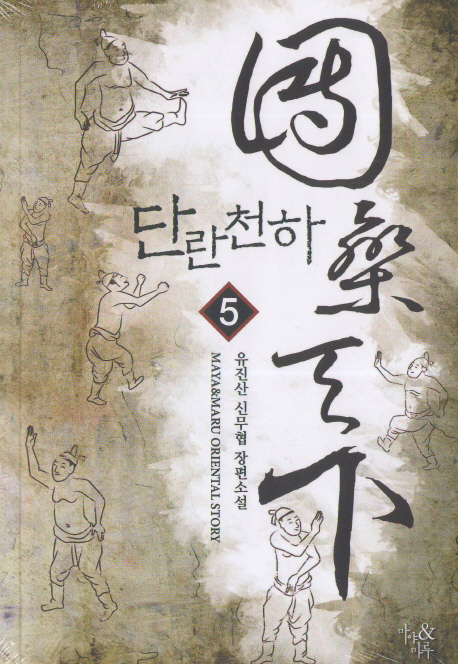 團欒天下
단란천하
5
유진산 신무협 장편소설
MAYA&MARU ORIENTAL STORY
마야&마루